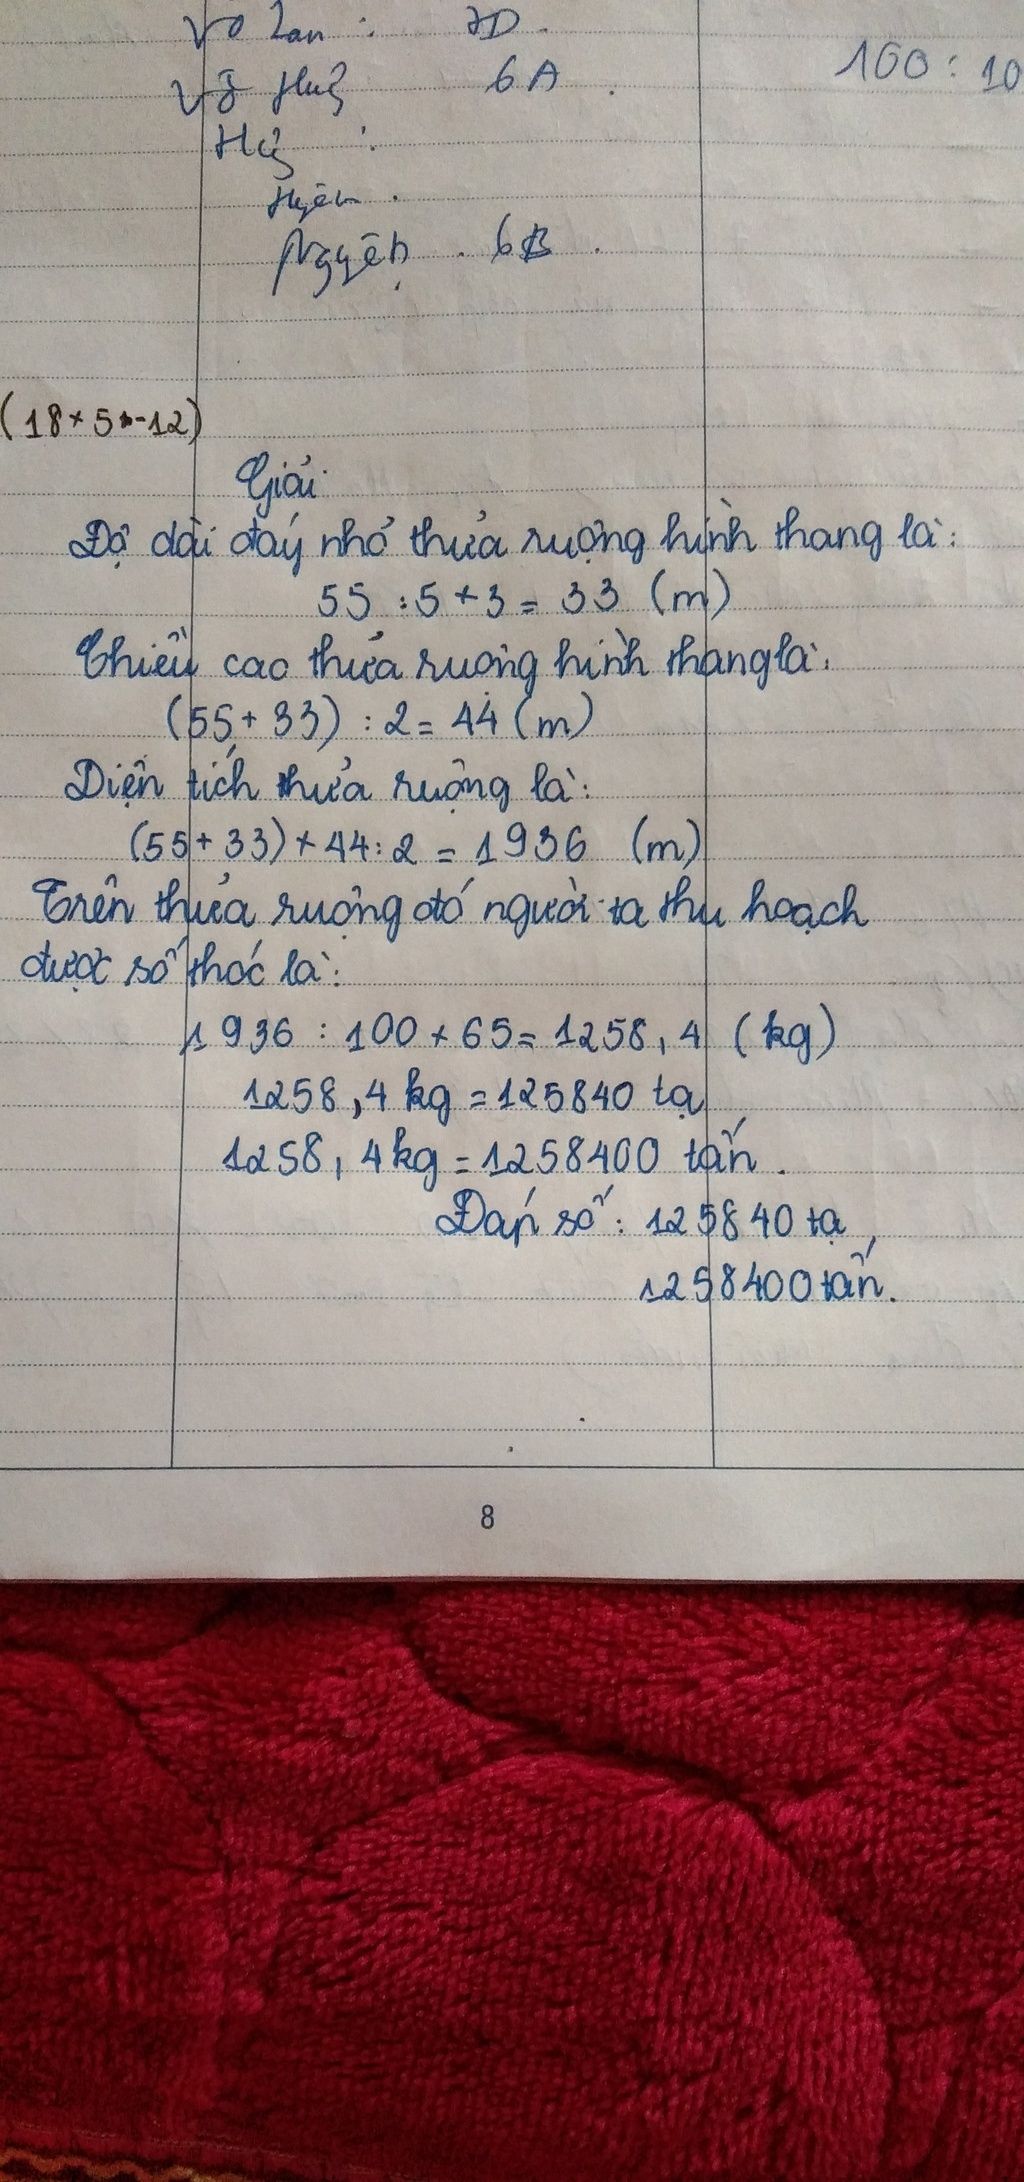 Võ Lan : 7D.
6A .
160 : 10
Huyên .
Nguyện . 6B .
(18 × 5 - 12)
Giải
Độ dài đáy nhỏ thửa ruộng hình thang là:
55 : 5 × 3 = 33 (m)
Chiều cao thửa ruộng hình thang là:
(55 + 33) : 2 = 44 (m)
Diện tích thửa ruộng là:
(55 + 33) × 44 : 2 = 1936 (m)
Trên thửa ruộng đó người ta thu hoạch
được số thóc là:
1936 : 100 × 65 = 1258,4 (kg)
1258,4 kg = 125840 tạ
1258,4 kg = 1258400 tấn.
Đáp số: 125840 tạ,
1258400 tấn.
8